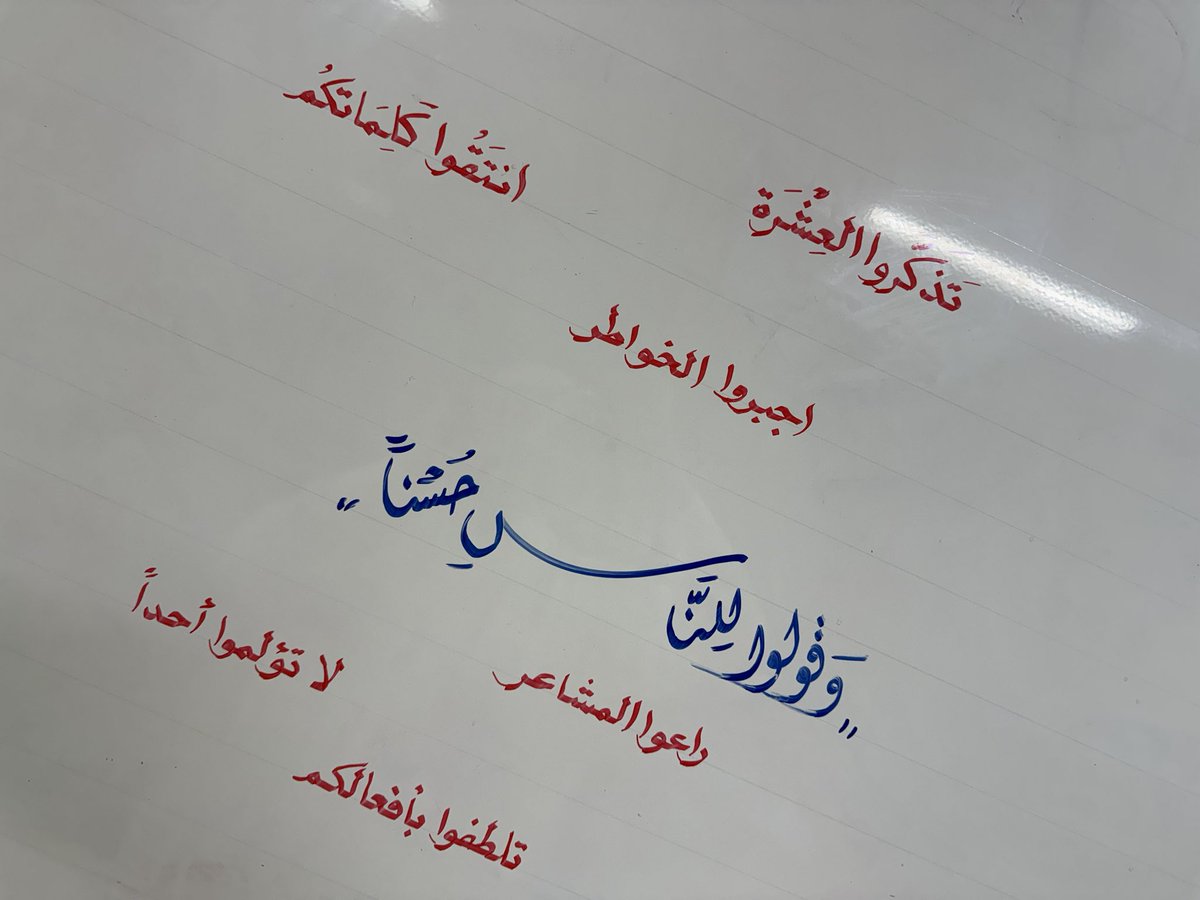 انتَقُوا كَلِمَاتكُم
تَذكَّروا العِشْرَة
اجبروا الخواطر
"وَقُولُوا لِلنَّاسِ حُسْناً"
لا تؤلموا أحداً
راعوا المشاعر
تلطفوا بأفعالكم